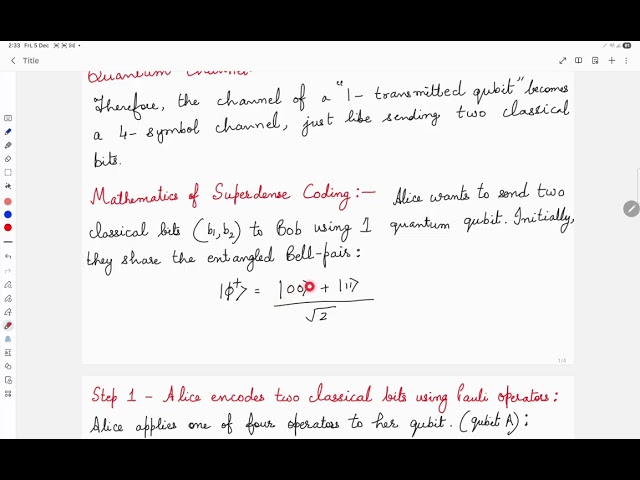 2:33 Fri, 5 Dec
91
Title
Quantum Channel
Therefore, the channel of a "1- transmitted qubit" becomes
a 4- symbol channel, just like sending two classical
bits.
Mathematics of Superdense Coding :— Alice wants to send two
classical bits (b₁, b₂) to Bob using 1 quantum qubit. Initially,
they share the entangled Bell-pair :
|ϕ⁺⟩ = |00⟩ + |11⟩
√2
1/4
Step 1 - Alice encodes two classical bits using Pauli operators :
Alice applies one of four operators to her qubit. (qubit A) :